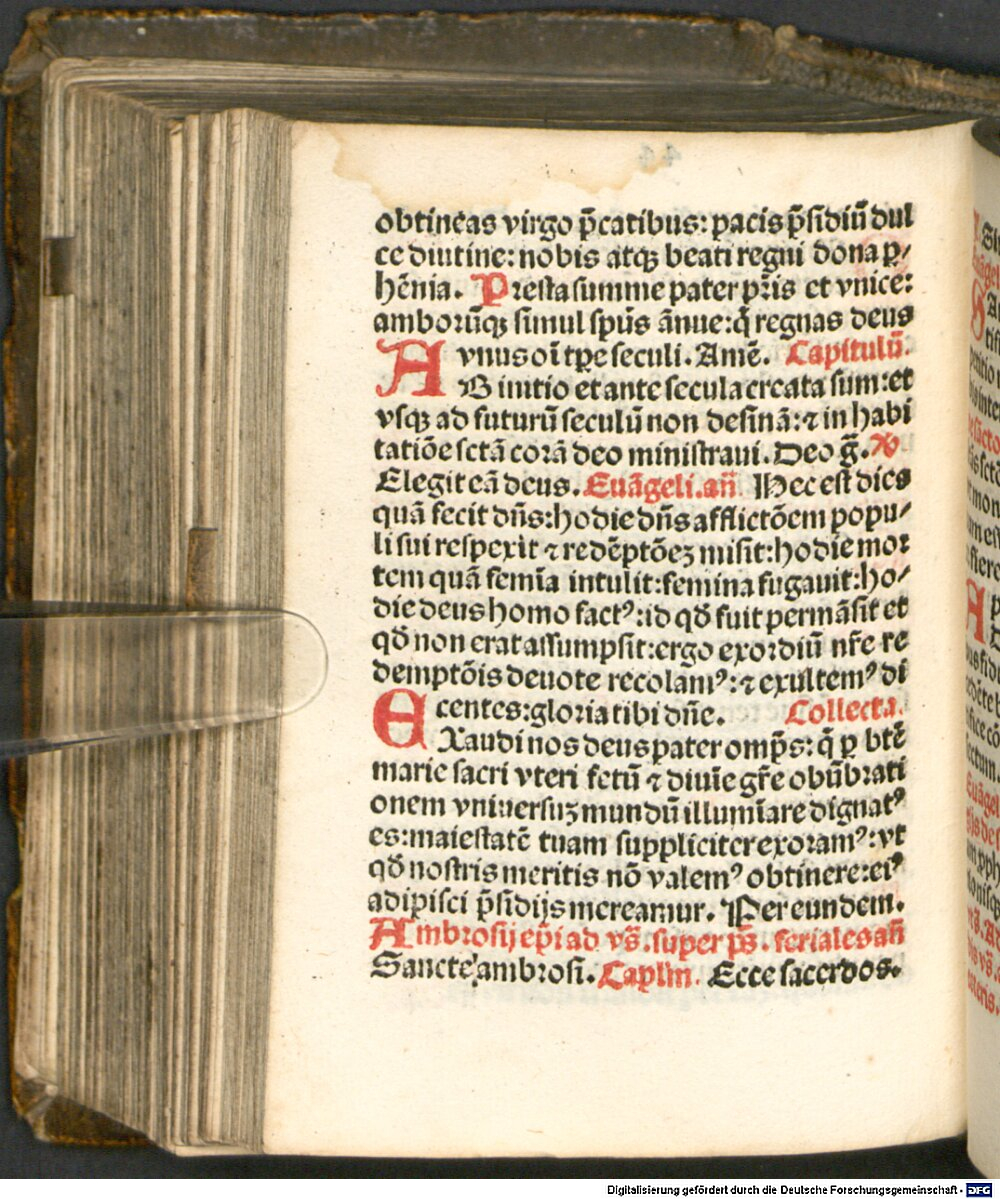 obtineas virgo p̄catibus: pacis p̄sidiū dul
ce diutine: nobis atqꝫ beati regni dona ꝑ/
hēnia. Presta summe pater pr̄is et vnice:
amborūqꝫ simul spūs ānue: q̄ regnas deus
vnus oī tꝑe seculi. Amē. Capitulū.
AB initio et ante secula creata sum: et
vsqꝫ ad futurū seculū non desinā: ⁊ in habi
tatiōe sctā corā deo ministraui. Deo g̅. ℣
Elegit eā deus. Euāgeli. an̄ Hec est dies
quā fecit dn̄s: hodie dn̄s afflictōem popu/
li sui respexit ⁊ redēptōeꝫ misit: hodie mor
tem quā femīa intulit: femina fugauit: ho/
die deus homo factꝰ: id qd̄ fuit permāsit et
qd̄ non erat assumpsit: ergo exordiū nr̄e re
demptōis deuote recolamꝰ: ⁊ exultemꝰ di
centes: gloria tibi dn̄e. Collecta.
EXaudi nos deus pater omp̄s: q̄ ꝑ btē
marie sacri vteri fetū ⁊ diuīe gr̄e obūbrati
onem vniuersuꝫ mundū illumīare dignatꝰ
es: maiestatē tuam suppliciter exoramꝰ: vt
qd̄ nostris meritis nō valemꝰ obtinere: eiꝰ
adipisci p̄sidijs mereamur. Per eundem.
Ambrosij ep̄i ad vs̄. super ps̄. feriales an̄
Sancte ambrosi. Capl'm. Ecce sacerdos.
Digitalisierung gefördert durch die Deutsche Forschungsgemeinschaft - DFG